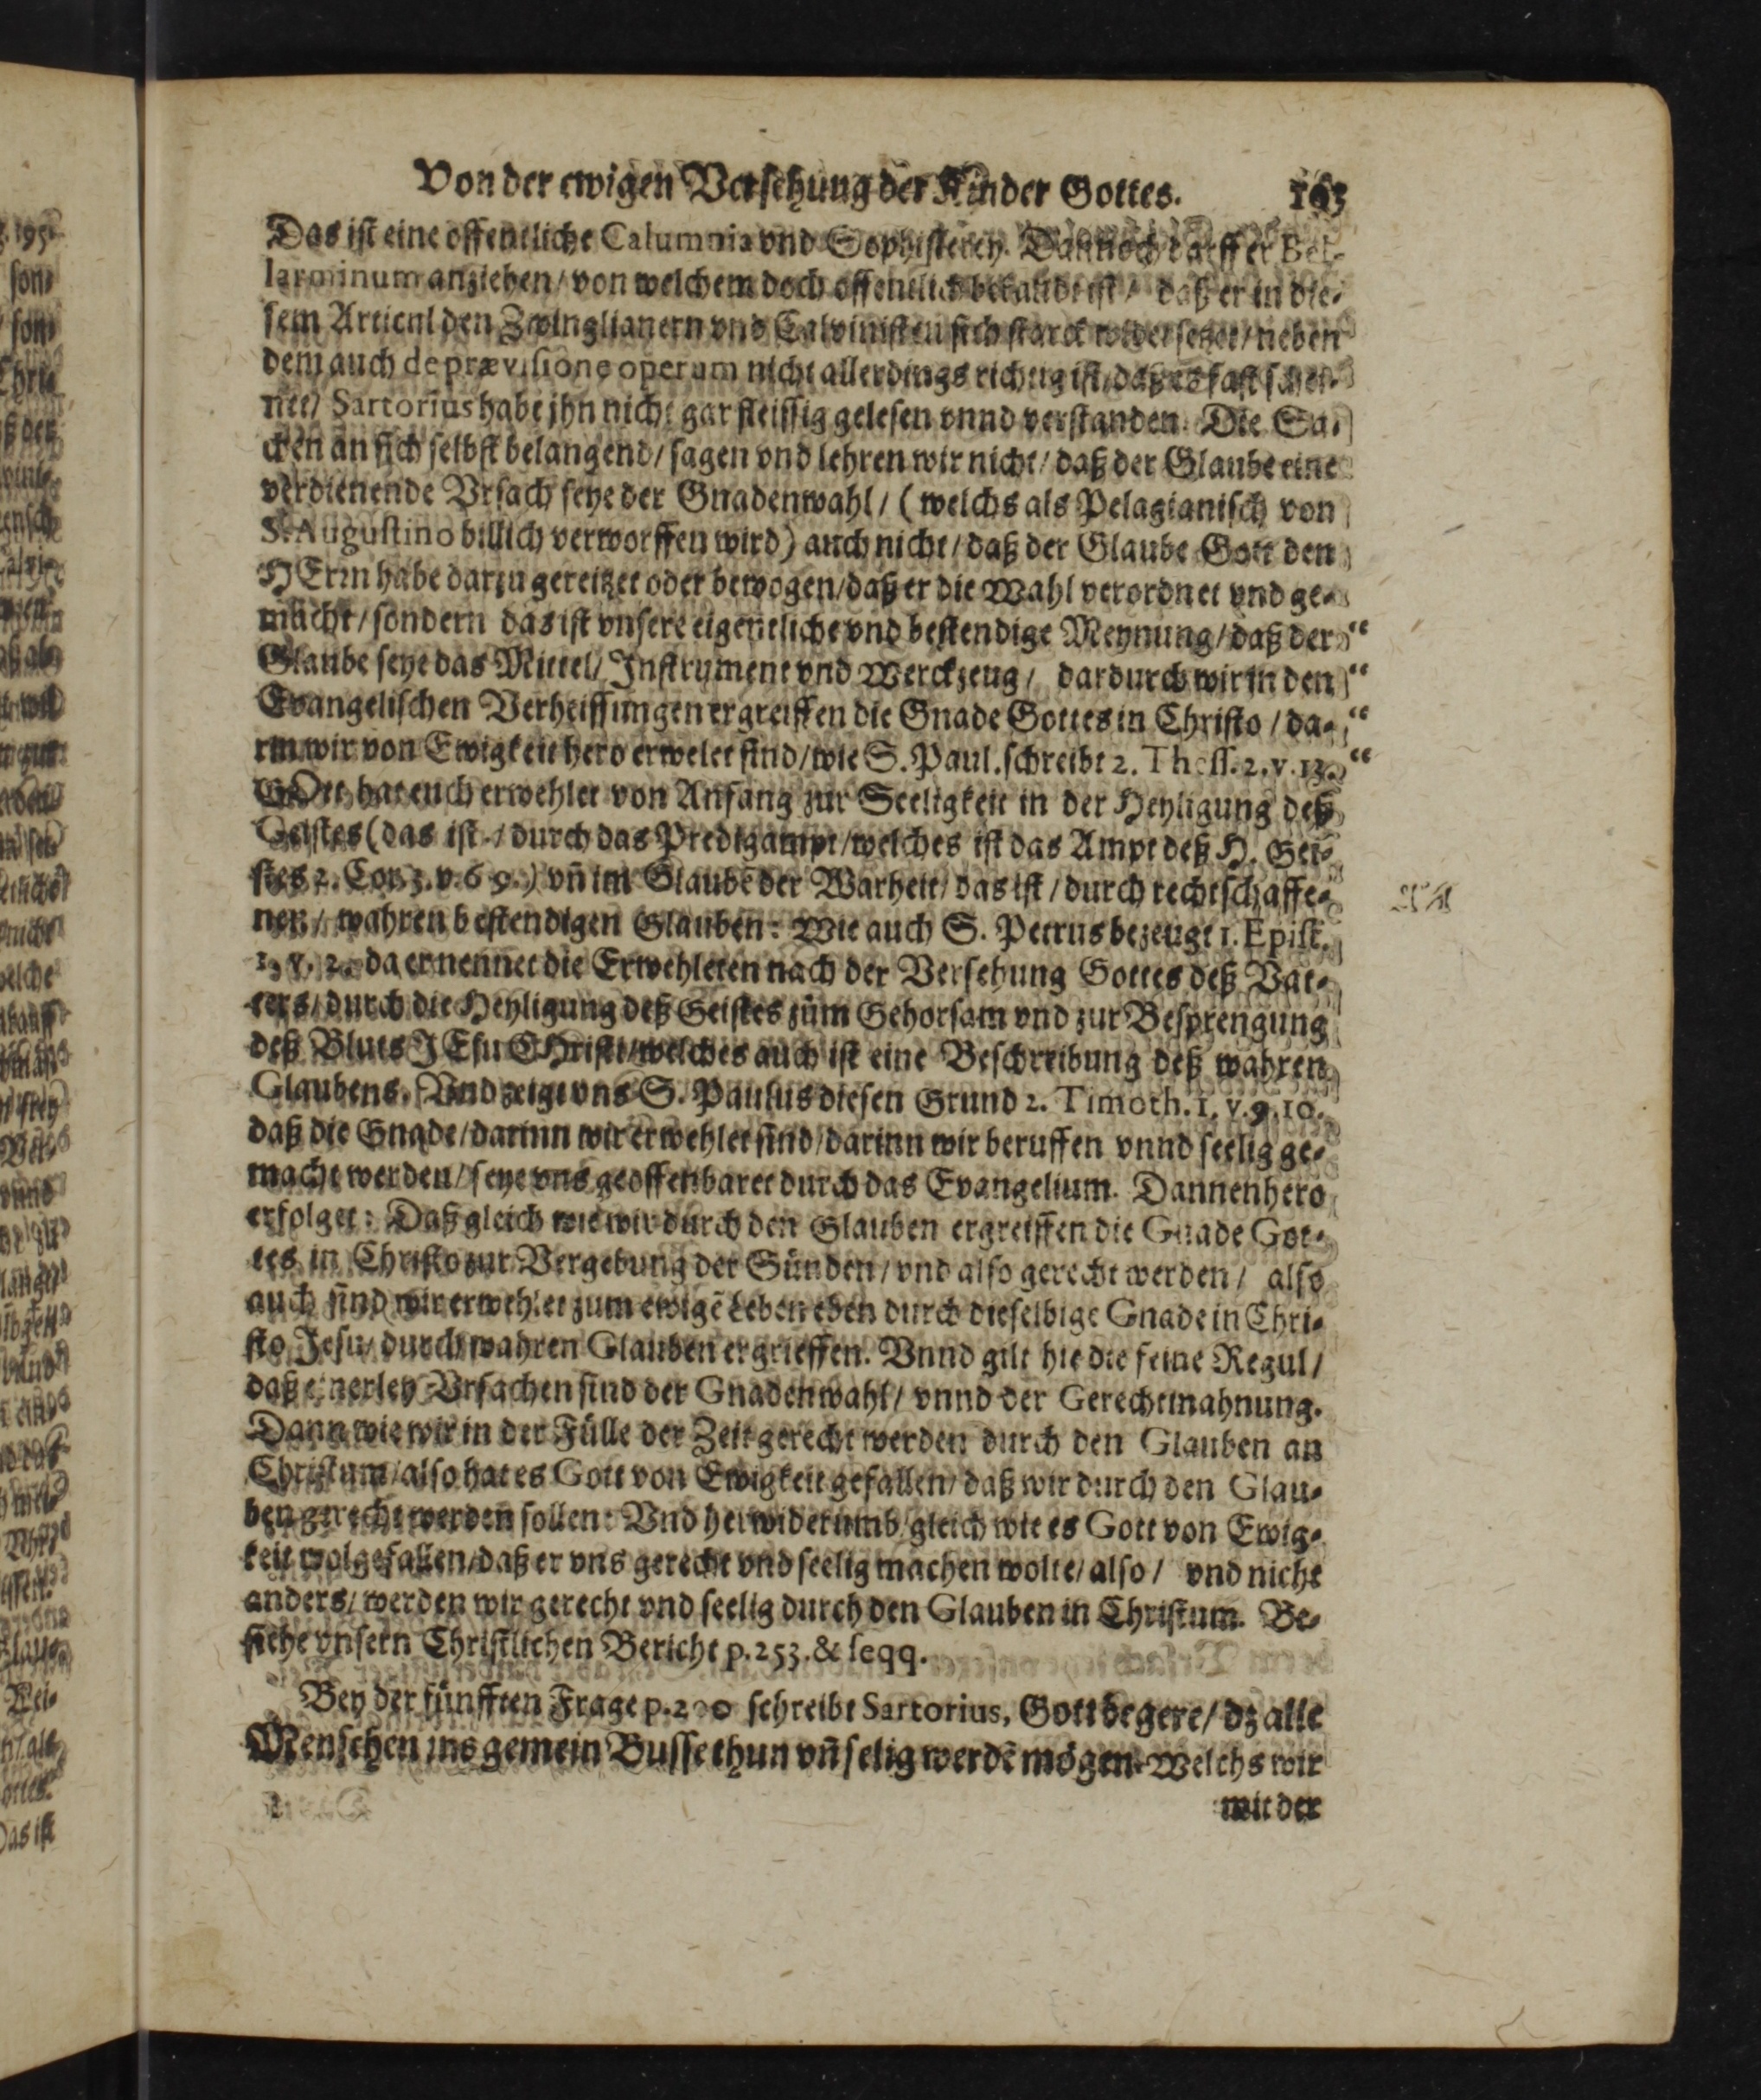 Von der ewigen Versehung der Kinder Gottes. 163
Das ist eine offentliche Calumnia vnd Sophisterey. Dannoch darff er Bel-
larminum anziehen/ von welchem doch offentlich bekandt ist/ daß er in die-
sem Articul den Zwinglianern vnd Calvinisten sich starck widersetzet/ neben
dem auch de prævisione operum nicht allerdings richtig ist/ daß es fast schei-
net/ Sartorius habe jhn nicht gar fleissig gelesen vnnd verstanden. Die Sa-
chen an sich selbst belangend/ sagen vnd lehren wir nicht/ daß der Glaube eine
verdienende Vrsach seye der Gnadenwahl/ (welchs als Pelagianisch von
S. Augustino billich verworffen wird) auch nicht/ daß der Glaube Gott den
HErrn habe darzu gereitzet oder bewogen/ daß er die Wahl verordnet vnd ge-
macht/ sondern das ist vnsere eigentliche vnd bestendige Meynung/ daß der “
Glaube seye das Mittel/ Instrument vnd Werckzeug/ dardurch wir in den “
Evangelischen Verheissungen ergreiffen die Gnade Gottes in Christo/ da- “
rin wir von Ewigkeit hero erwelet sind/ wie S. Paul. schreibt 2. Thess. 2. v. 13. “
GOtt hat euch erwehlet von Anfang zur Seeligkeit in der Heyligung deß
Geistes (das ist/ durch das Predigampt/ welches ist das Ampt deß H. Gei-
stes 2. Cor. 3. v. 6 9.) vñ im Glaubē der Warheit/ das ist/ durch rechtschaffe-
nen/ wahren bestendigen Glauben: Wie auch S. Petrus bezeugt 1. Epist.
1. v. 2. da er nennet die Erwehleten nach der Versehung Gottes deß Vat-
ters/ durch die Heyligung deß Geistes zum Gehorsam vnd zur Besprengung
deß Bluts JEsu CHristi/ welches auch ist eine Beschreibung deß wahren
Glaubens. Vnd zeigt vns S. Paulus diesen Grund 2. Timoth. 1. v. 9. 10.
daß die Gnade/ darinn wir erwehlet sind/ darinn wir beruffen vnnd seelig ge-
macht werden/ seye vns geoffenbaret durch das Evangelium. Dannenhero
erfolget: Daß gleich wie wir durch den Glauben ergreiffen die Gnade Got-
tes in Christo zur Vergebung der Sünden/ vnd also gerecht werden/ also
auch sind wir erwehlet zum ewigē Leben eben durch dieselbige Gnade in Chri-
sto Jesu/ durch wahren Glauben ergrieffen. Vnnd gilt hie die feine Regul/
daß einerley Vrsachen sind der Gnadenwahl/ vnnd der Gerechtmahnung.
Dann wie wir in der Fülle der Zeit gerecht werden durch den Glauben an
Christum/ also hat es Gott von Ewigkeit gefallen/ daß wir durch den Glau-
ben gerecht werden sollen: Vnd herwiderumb/ gleich wie es Gott von Ewig-
keit wolgefallen/ daß er vns gerecht vnd seelig machen wolte/ also/ vnd nicht
anders/ werden wir gerecht vnd seelig durch den Glauben in Christum. Be-
siehe vnsern Christlichen Bericht p. 253. & seqq.
Bey der fünfften Frage p. 200 schreibt Sartorius, Gott begere/ dz alle
Menschen ins gemein Busse thun vñ selig werdē mögen. Welchs wir
mit der